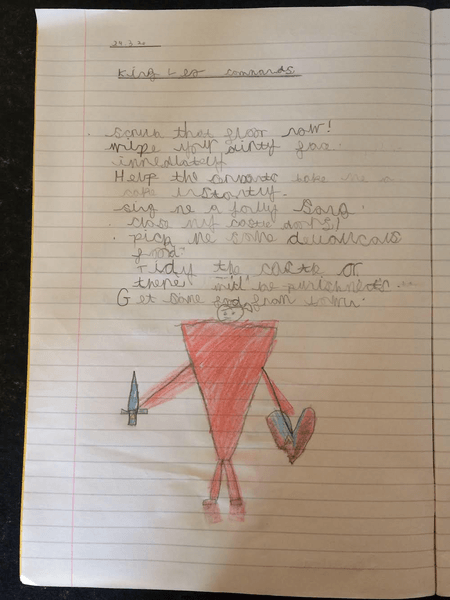 King Leo commands
scrub that floor now!
wipe your dirty face
immediately
Help the servants bake me a
cake instantly.
sing me a jolly song
close my castle doors!
pick me some
food
Tidy the castle or
there will be punishments
Get some food from town.